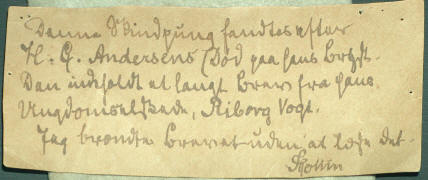 Denne Skindpung fandtes efter
H. C. Andersens Død paa hans Bryst.
Den indholdt et langt Brev fra hans
Ungdomselskede, Riborg Voigt.
Jeg brændte Brevet uden at læse det.
JCollin